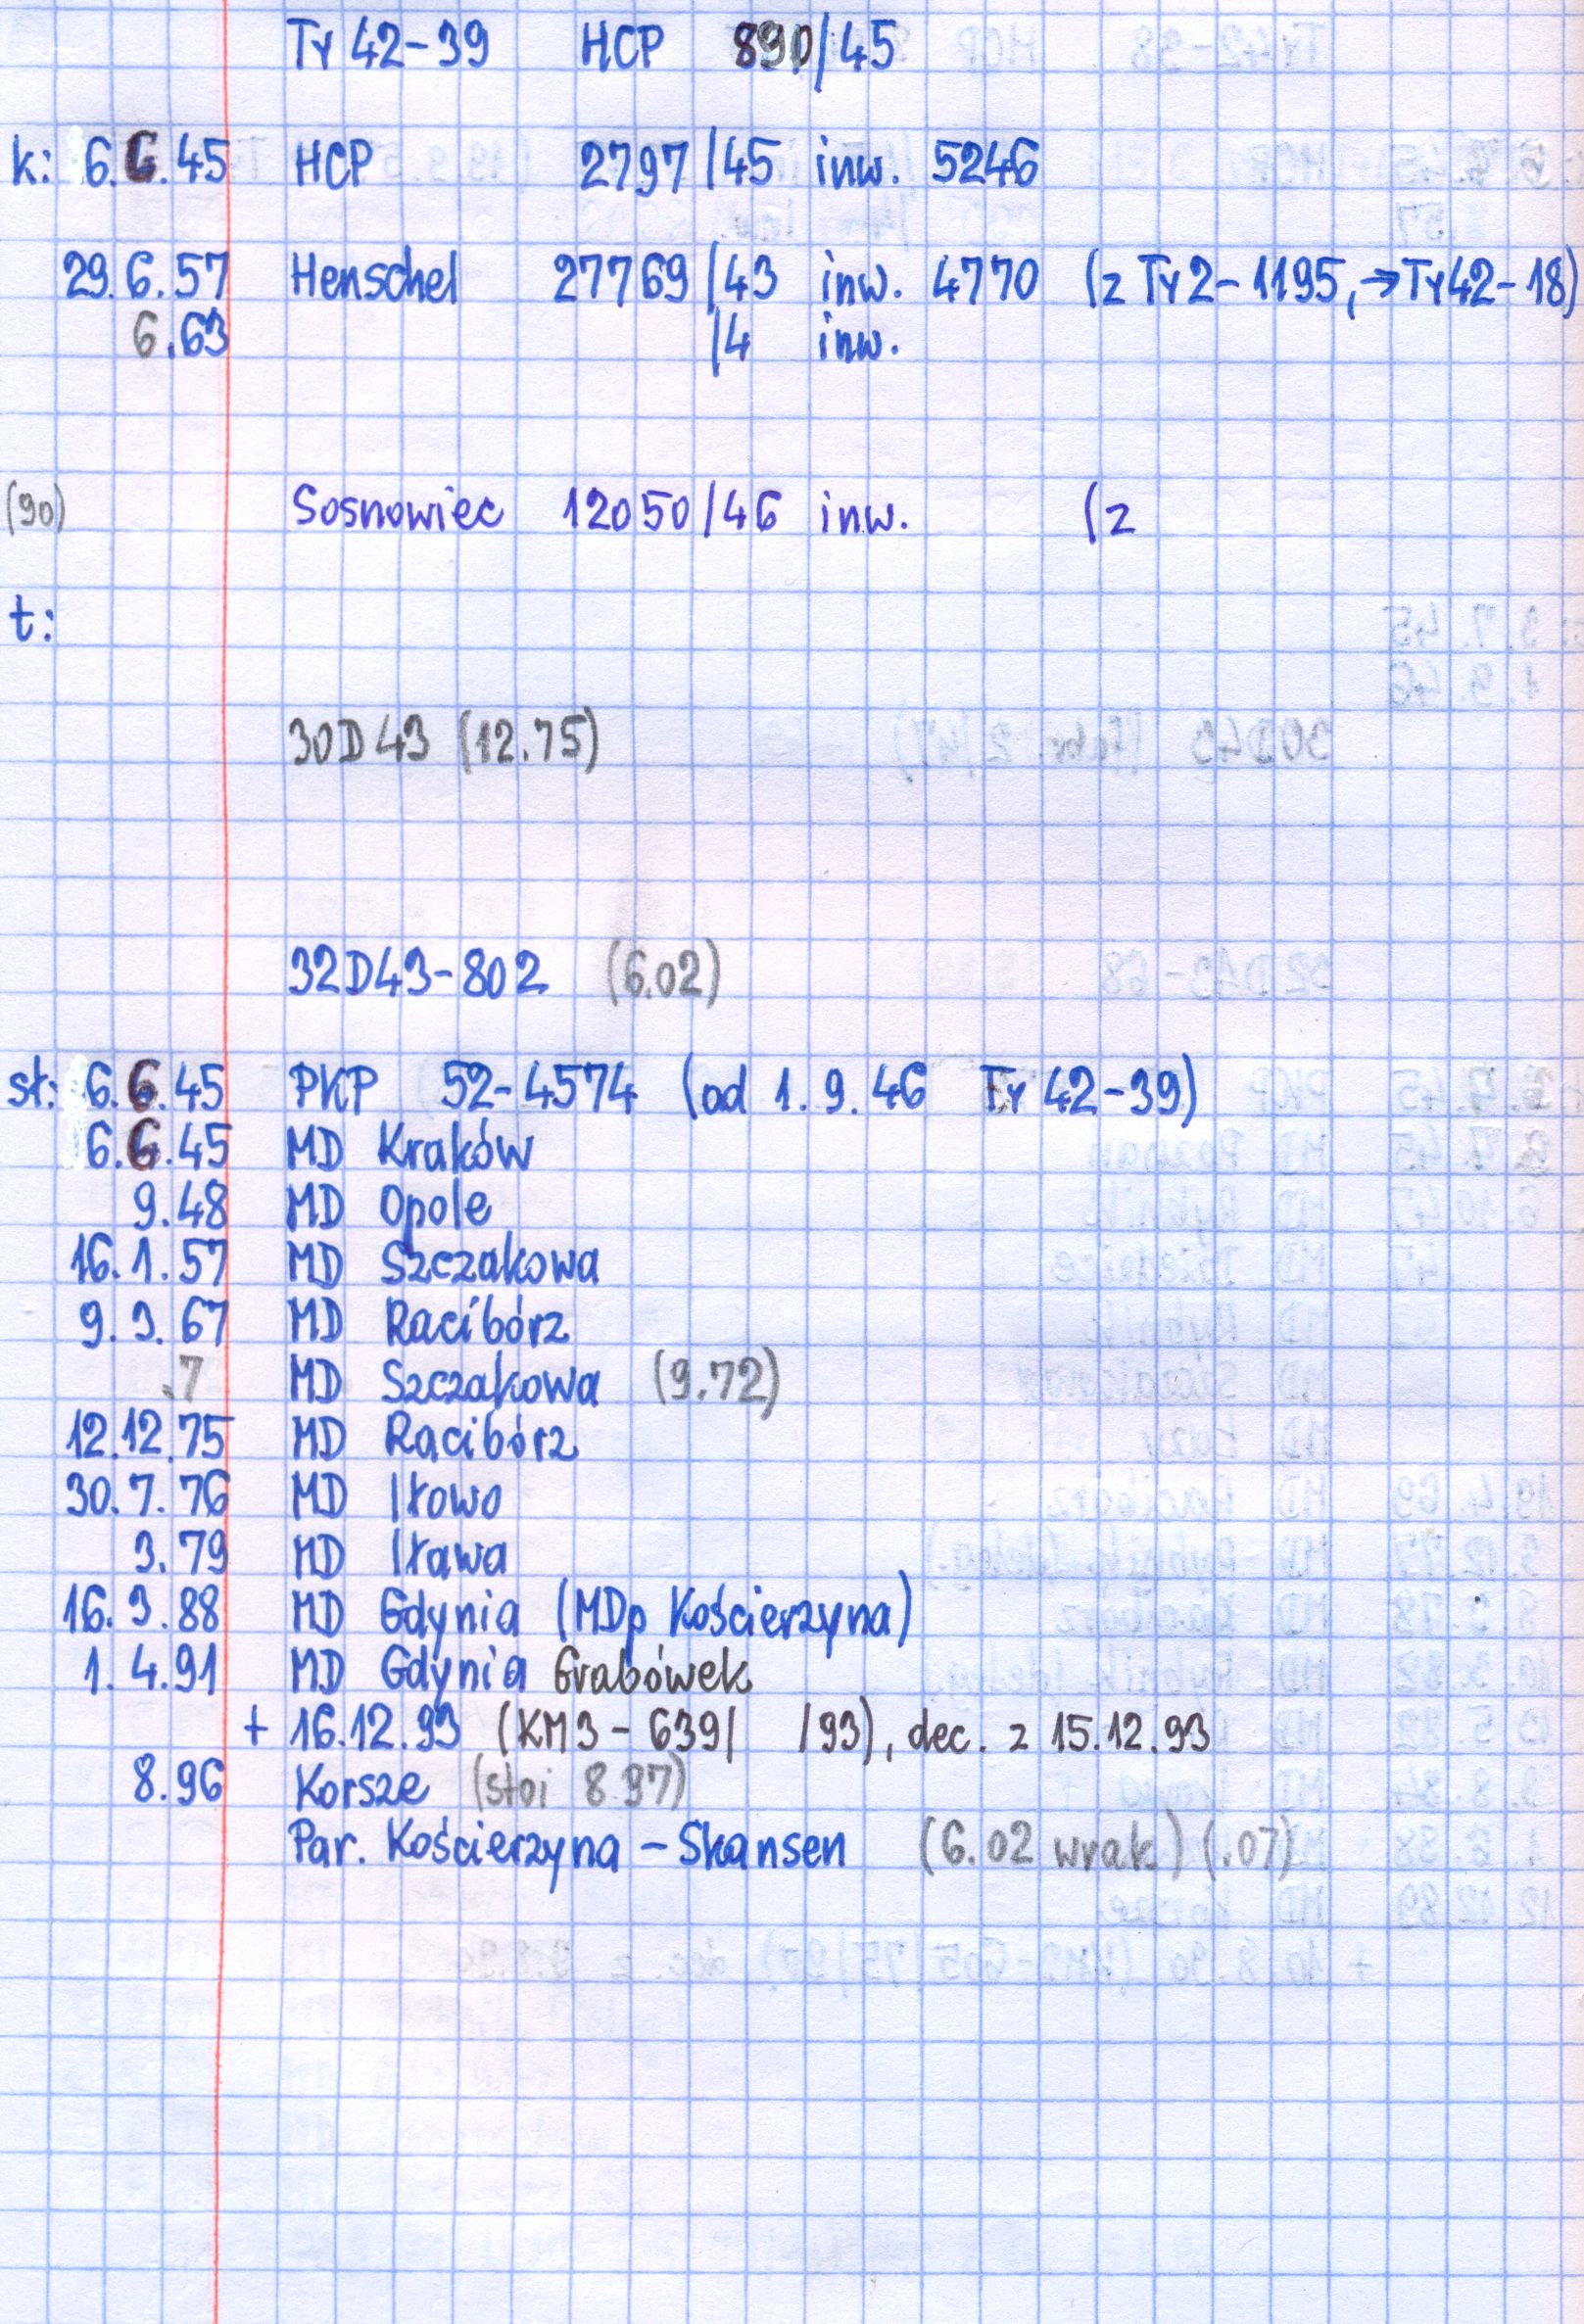 Ty 42-39 HCP 890/45
k: 6.6.45 HCP 2797/45 inw. 5246
29.6.57 Henschel 27769/43 inw. 4770 (z Ty2-1195, →Ty42-18)
6.63 /4 inw.
(90) Sosnowiec 12050/46 inw. (z
t:
30D43 (12.75)
32D43-802 (6.02)
st: 6.6.45 PKP 52-4574 (od 1.9.46 Ty 42-39)
6.6.45 MD Kraków
9.48 MD Opole
16.1.57 MD Szczakowa
9.3.67 MD Racibórz
.7 MD Szczakowa (9.72)
12.12.75 MD Racibórz
30.7.76 MD Iłowo
3.79 MD Iława
16.3.88 MD Gdynia (MDp Kościerzyna)
1.4.91 MD Gdynia Grabówek
+ 16.12.93 (KM3-639/ /93), dec. z 15.12.93
8.96 Korsze (stoi 8.97)
Par. Kościerzyna - Skansen (6.02 wrak) (.07)